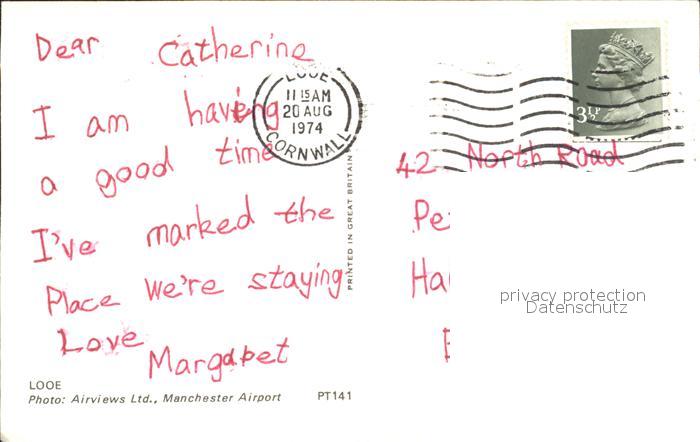 Dear Catherine
I am having
a good time
I've marked the
Place we're staying
Love
Margaret
LOOE
Photo: Airviews Ltd., Manchester Airport PT141
PRINTED IN GREAT BRITAIN
LOOE
11 15 AM
20 AUG
1974
CORNWALL
3½P
42 North Road
Pe
Ha
privacy protection
Datenschutz